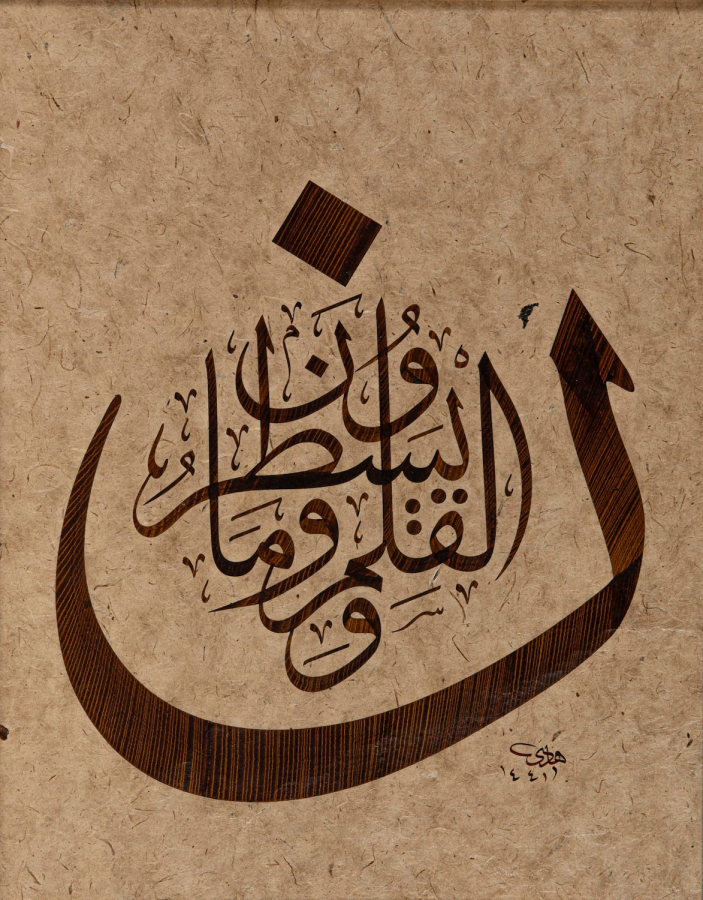 ن وَالْقَلَمِ وَمَا يَسْطُرُونَ
هادي
١٤٤١